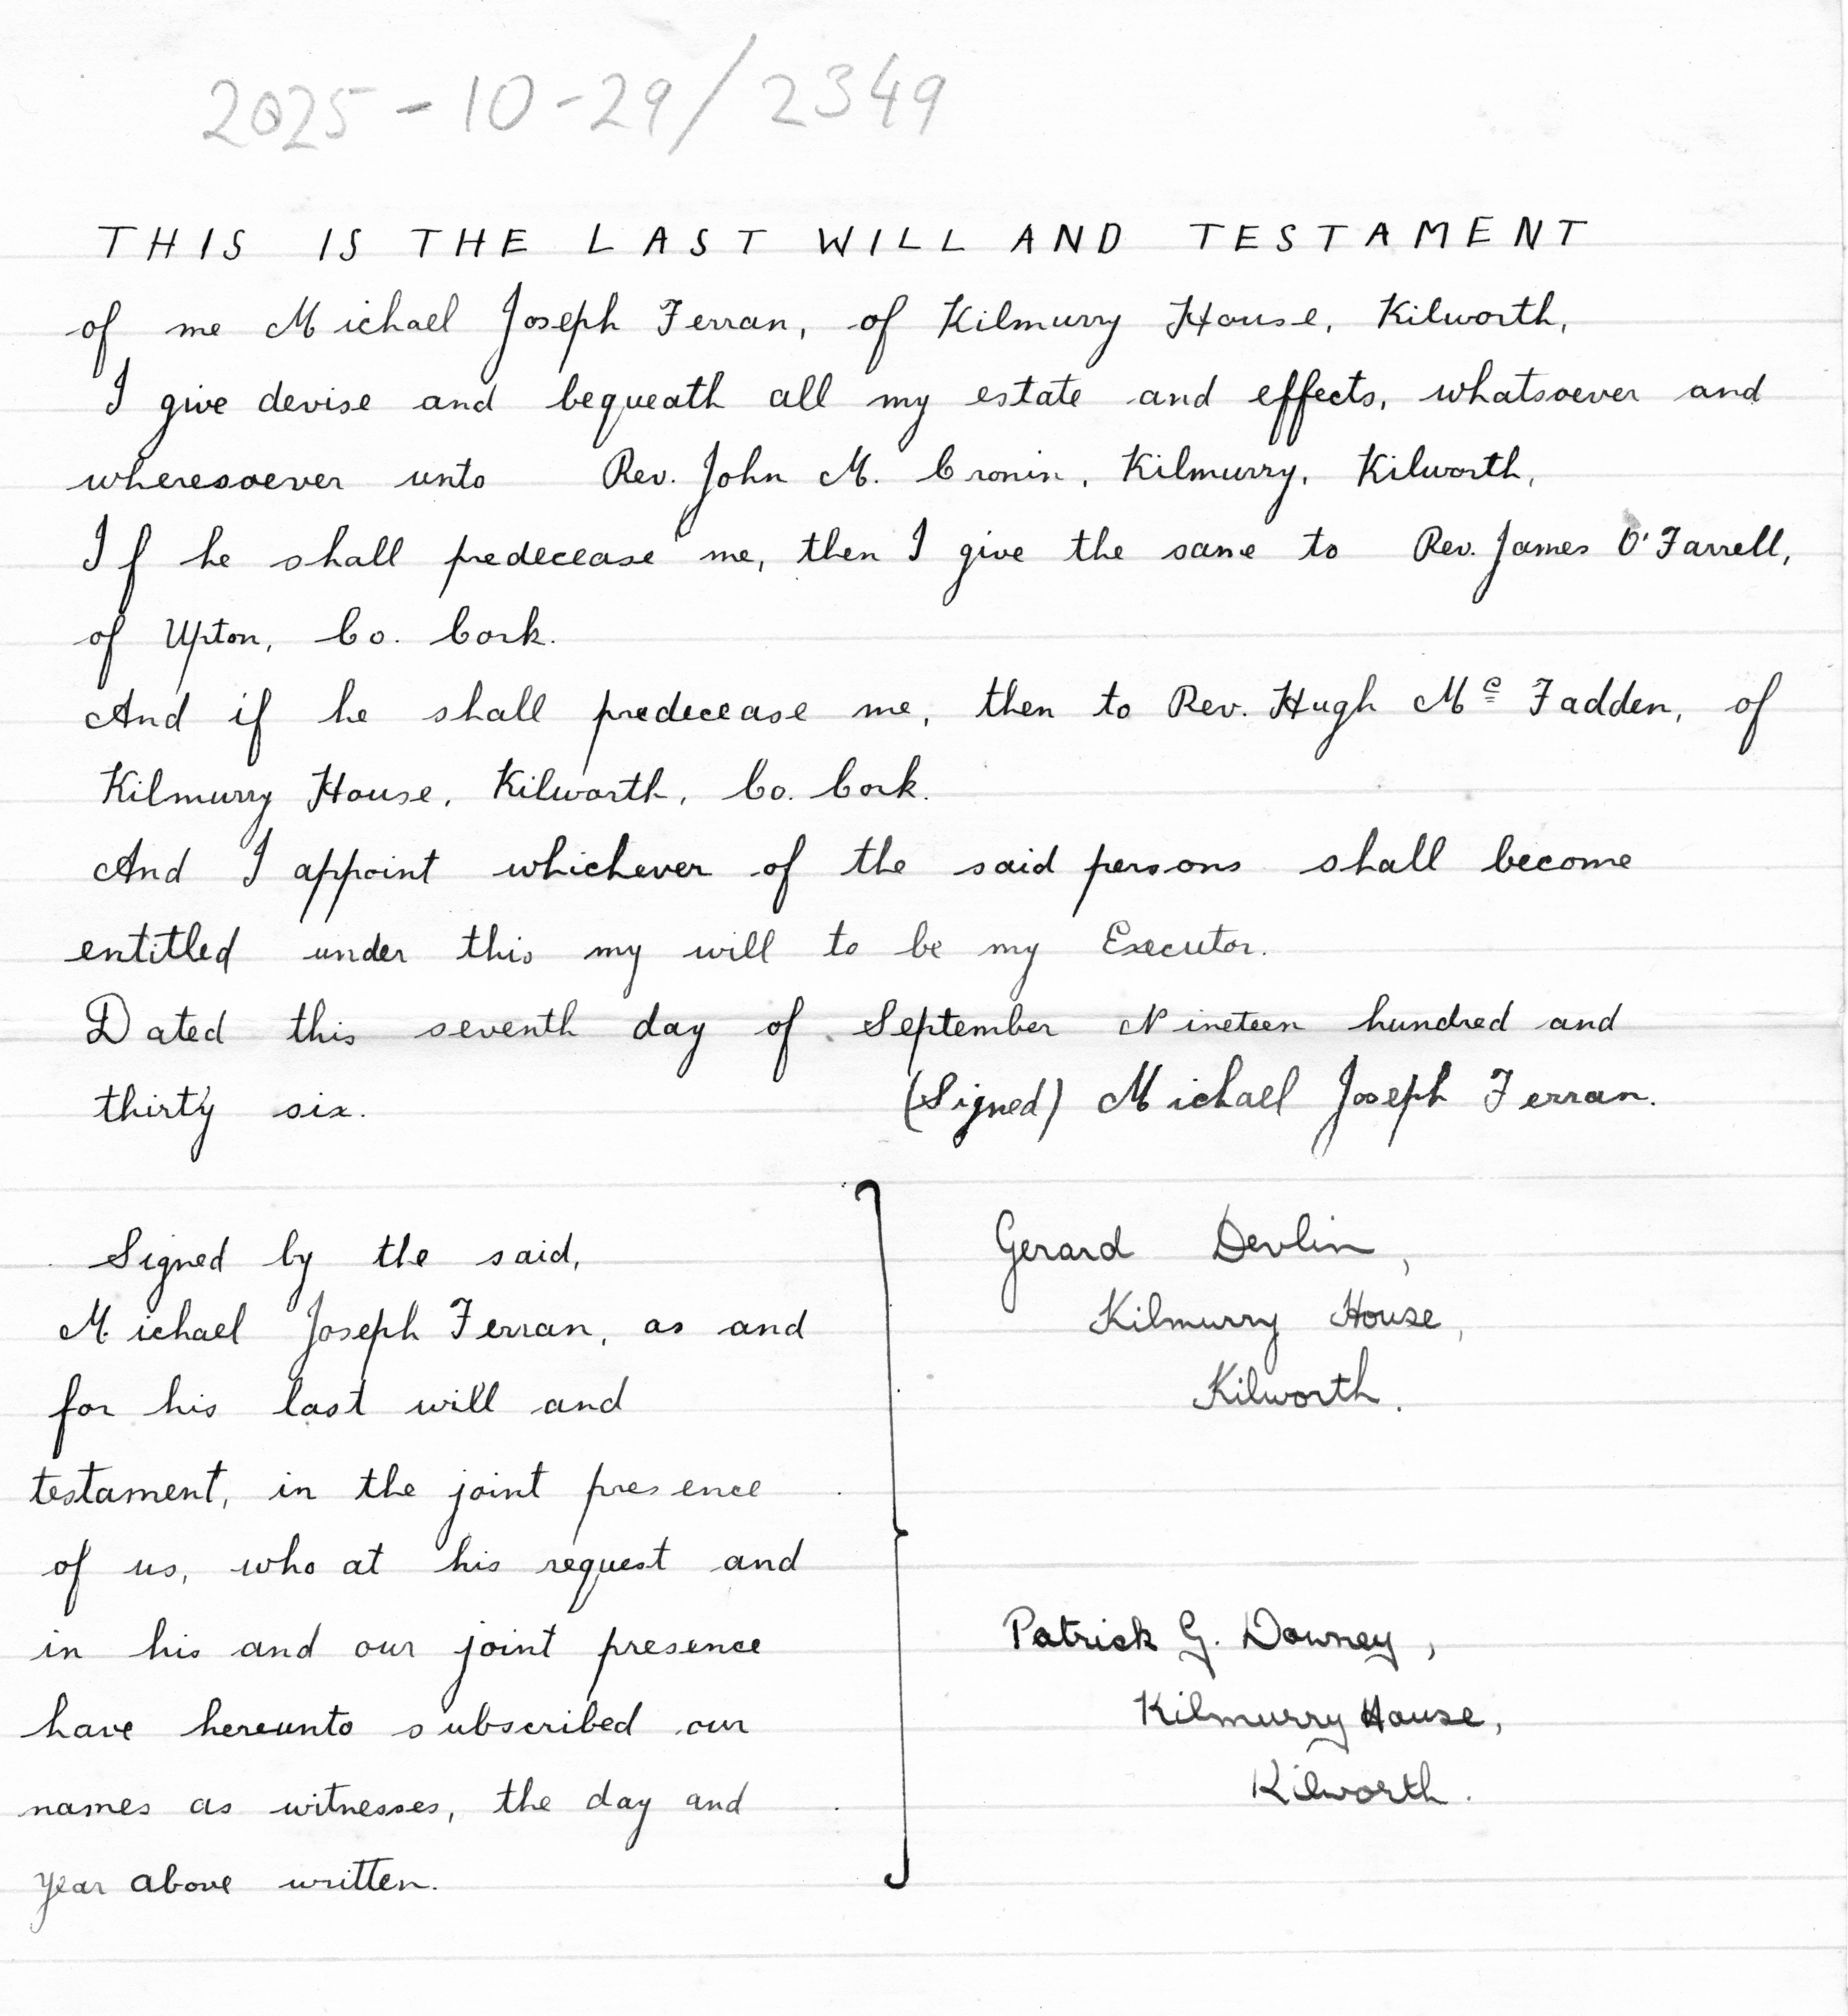 2025-10-29/2349
THIS IS THE LAST WILL AND TESTAMENT
of me Michael Joseph Ferran, of Kilmurry House, Kilworth,
I give devise and bequeath all my estate and effects, whatsoever and
wheresoever unto Rev. John M. Cronin, Kilmurry, Kilworth,
If he shall predecease me, then I give the same to Rev. James O'Farrell,
of Upton, Co. Cork.
And if he shall predecease me, then to Rev. Hugh Mc Fadden, of
Kilmurry House, Kilworth, Co. Cork.
And I appoint whichever of the said persons shall become
entitled under this my will to be my Executor.
Dated this seventh day of September Nineteen hundred and
thirty six. (Signed) Michael Joseph Ferran.
Signed by the said,
Michael Joseph Ferran, as and
for his last will and
testament, in the joint presence
of us, who at his request and
in his and our joint presence
have hereunto subscribed our
names as witnesses, the day and
year above written.
Gerard Devlin,
Kilmurry House,
Kilworth.
Patrick G. Downey,
Kilmurry House,
Kilworth.